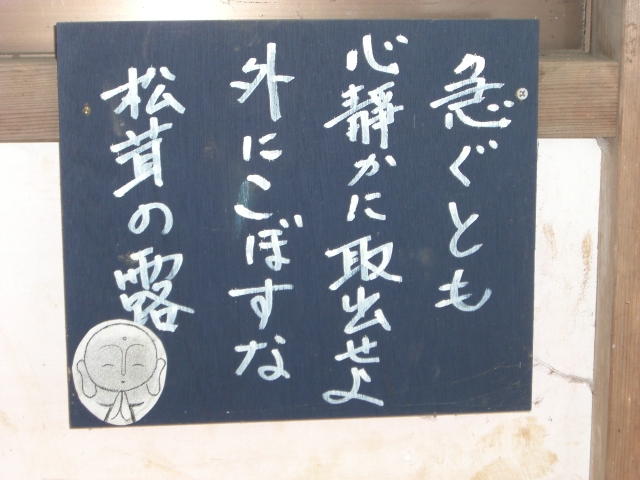 急ぐとも
心静かに取出せよ
外にこぼすな
松茸の露